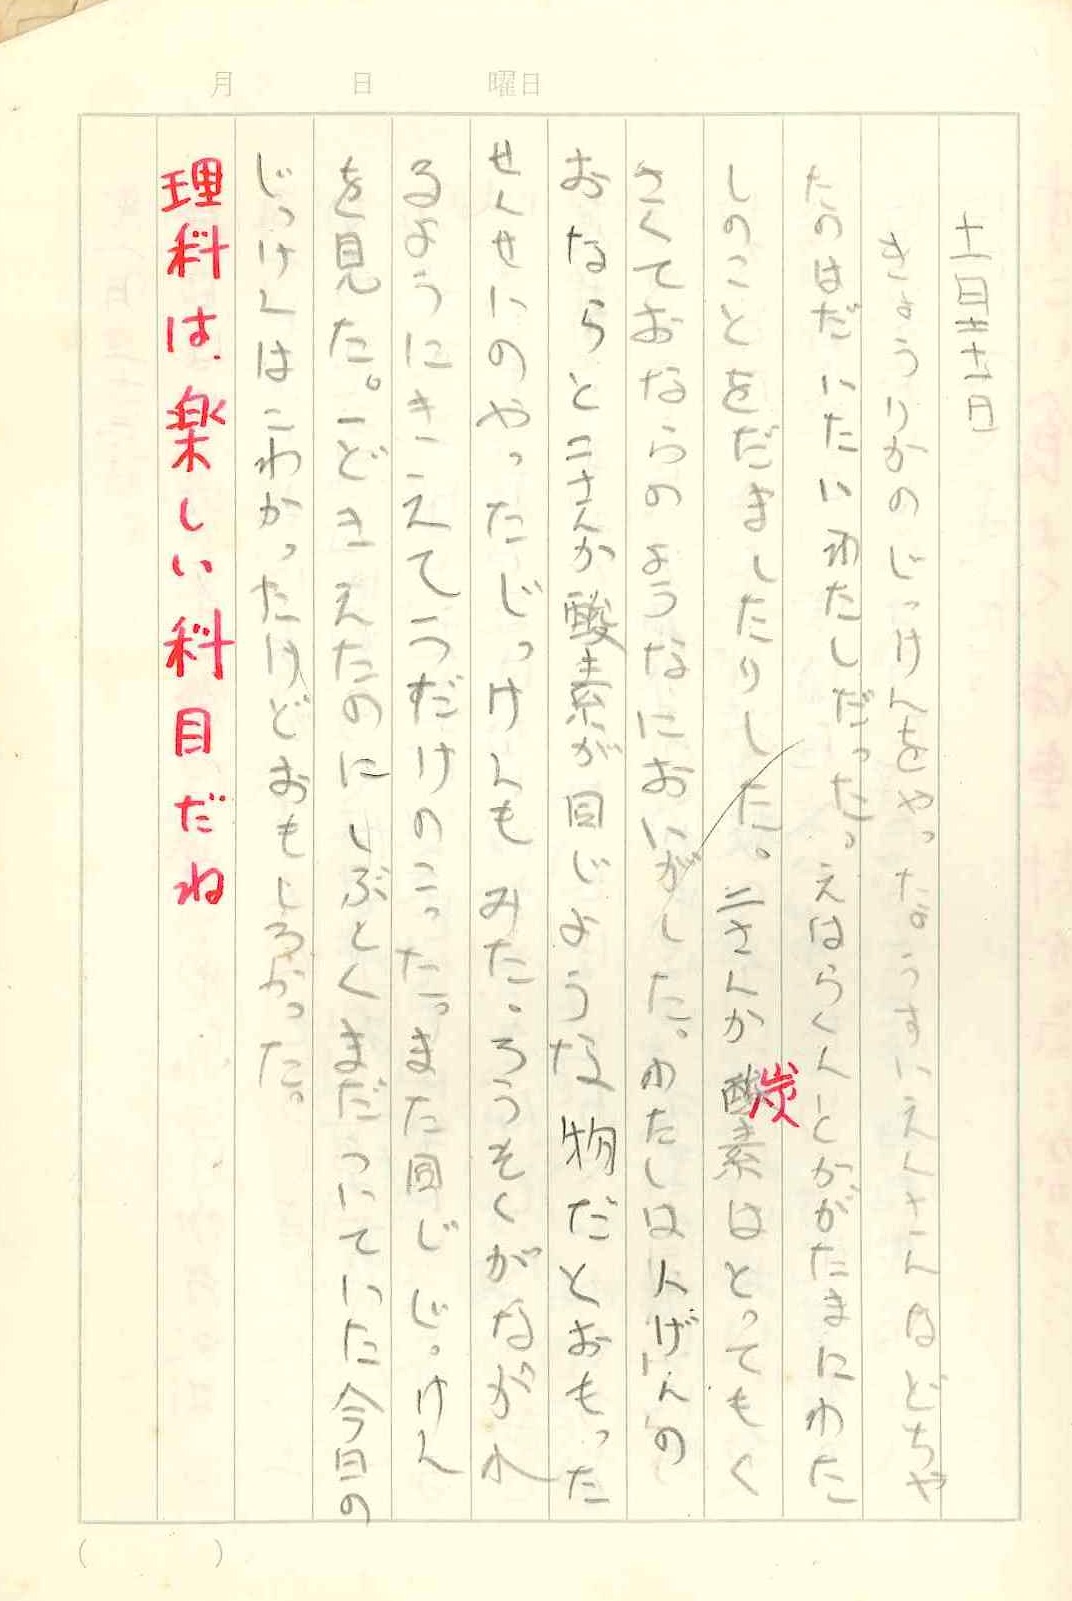 月 日 曜日
十一月二十一日
きょうりかのじっけんをやった。うすいえんさんなどちゃ
たのはだいたいわたしだった。えはらくんとかがたまにわた
しのことをだましたりした。二さんか酸素はとってもく
炭
さくておならのようなにおいがした。わたしは人げんの
おならと二さんか酸素が同じような物だとおもった
せんせいのやったじっけんもみた。ろうそくがながれ
るようにきこえてうだけのこった。また同じじっけん
を見た。一どきえたのにしぶとくまだついていた今日の
じっけんはこわかったけどおもしろかった。
理科は、楽しい科目だね
( )